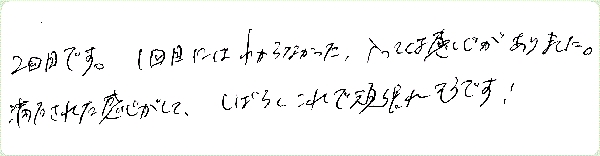 2回目です。1回目にはわからなかった、入ってくる感じがありました。
満たされた感じがして、しばらくこれで頑張れそうです!